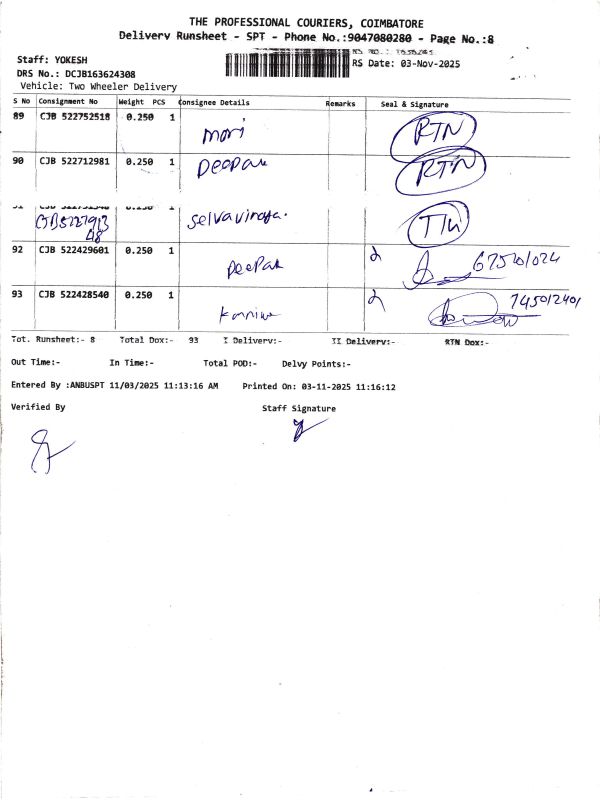 THE PROFESSIONAL COURIERS, COIMBATORE
Delivery Runsheet - SPT - Phone No.:9047080280 - Page No.:8
Staff: YOKESH
RS Date: 03-Nov-2025
DRS No.: DCJB163624308
Vehicle: Two Wheeler Delivery
S No Consignment No Weight PCS Consignee Details Remarks Seal & Signature
89 CJB 522752518 0.250 1 mori RTN
90 CJB 522712981 0.250 1 Deepak RTN
selvaviraga. 
92 CJB 522429601 0.250 1 Deepak
93 CJB 522428540 0.250 1
Tot. Runsheet:- 8 Total Dox:- 93 I Delivery:- II Delivery:- RTN Dox:-
Out Time:- In Time:- Total POD:- Delvy Points:-
Entered By :ANBUSPT 11/03/2025 11:13:16 AM Printed On: 03-11-2025 11:16:12
Verified By Staff Signature